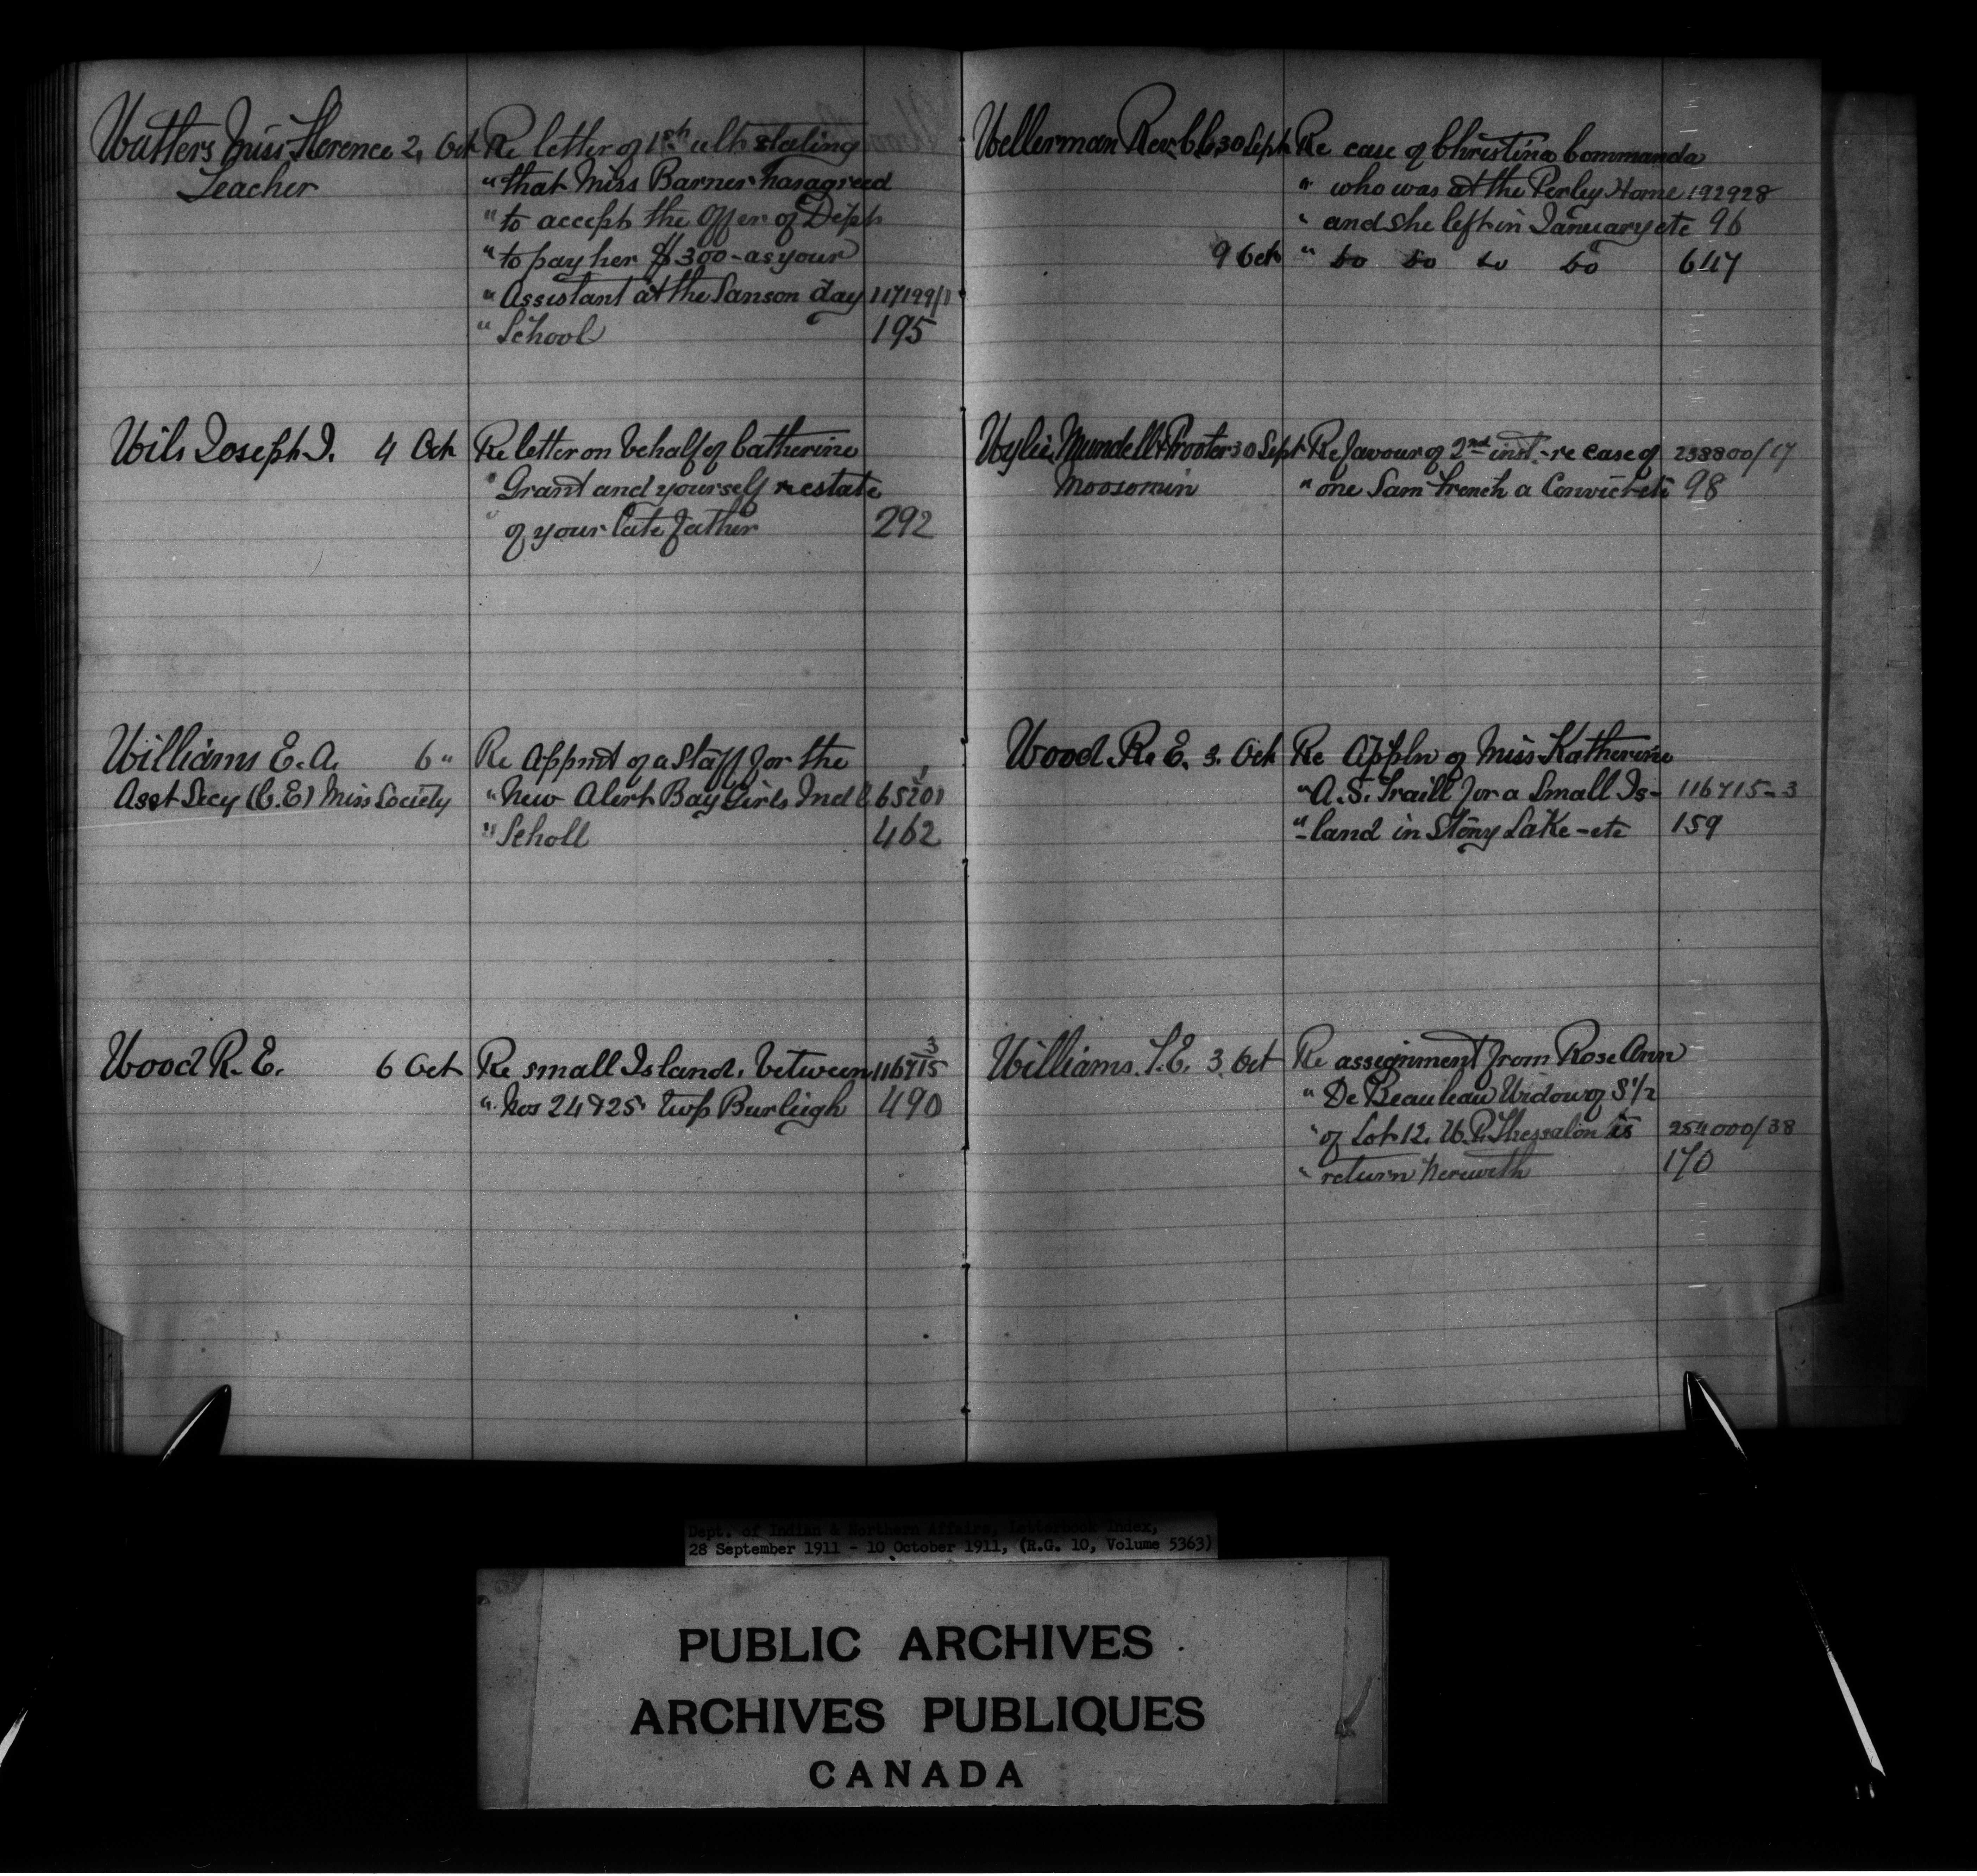 Watters Miss Florence 2, Oct Re letter of 1st ulto stating
Teacher " that Miss Barner has agreed
" to accept the Offer of Dept
" to pay her $300 - as your
" Assistant at the Sanson day 117199/1
" School 195
Wils Joseph I. 4 Oct Re letter on behalf of Catherine
" Grant and yourself re estate
" of your late father 292
Williams E. A. 6 " Re Appmt of a Staff for the
Asst Secy (C.E) Miss Society " New Alert Bay Girls Ind l 65201
" Scholl 462
Wood R. E. 6 Oct Re small Island, between 116715 3
" Nos 24 & 25 twp Burleigh 490
Wellerman Rev. C. C. 30 Sept Re case of Christina Commanda
" who was at the Perley Home 192928
" and she left in January etc 96
9 Oct " Do Do Do Do 647
Wylie, Mundell & Prooter 30 Sept Re favour of 2nd inst - re case of 238800/17
Moosomin " one Sam French a Convict etc 98
Wood R. E. 3. Oct Re Appln of Miss Katherine
" A. S. Traill for a Small Is- 116715-3
" -land in Stony Lake - etc 159
Williams. T. E. 3. Oct Re assignment from Rose Ann
" De Beauleau Widow of S 1/2
" of Lot 12, W. P. Thessalon is 254000/38
" return herewith 170
Dept. of Indian & Northern Affairs, Letterbook Index,
28 September 1911 - 10 October 1911, (R.G. 10, Volume 5363)
PUBLIC ARCHIVES
ARCHIVES PUBLIQUES
CANADA